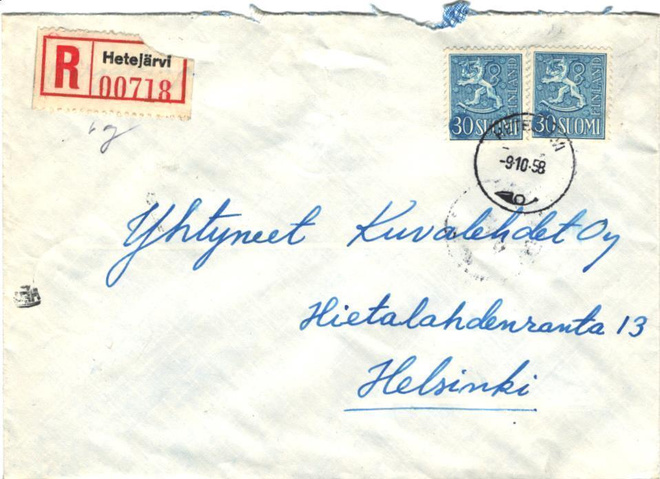 R Hetejärvi
00718
FINLAND FINLAND
30 SUOMI 30 SUOMI
-9.10.58
Yhtyneet Kuvalehdet Oy
Hietalahdenranta 13
Helsinki